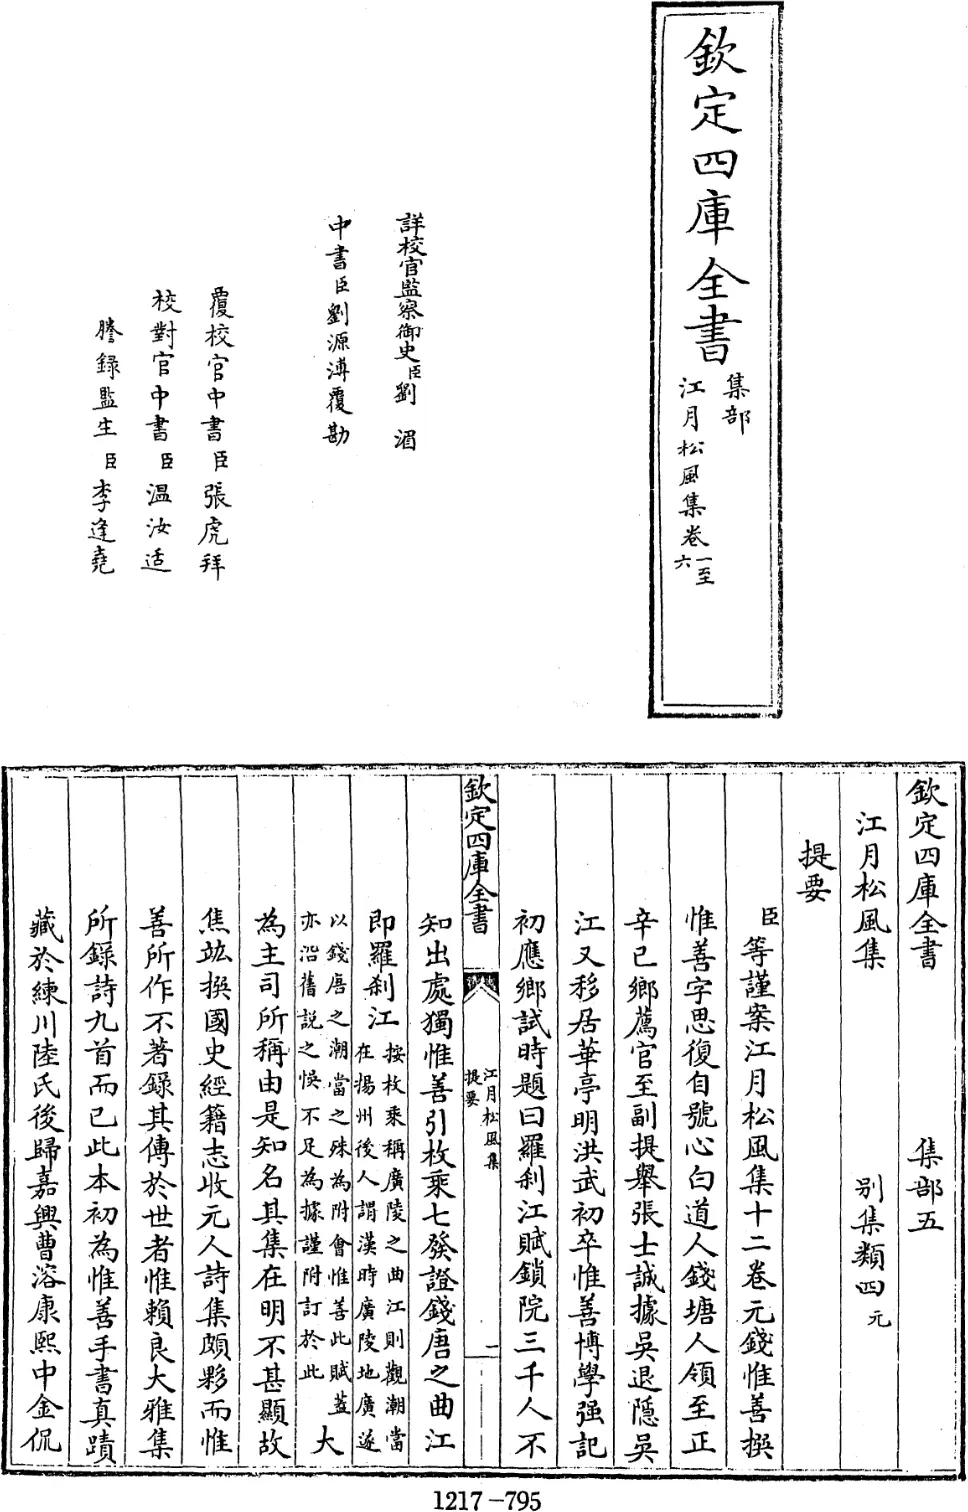 欽定四庫全書
集部
江月松風集卷一至六
詳校官監察御史臣劉湄
中書臣劉源溥覆勘
覆校官中書臣張虎拜
校對官中書臣温汝适
謄錄監生臣李逢堯
欽定四庫全書 集部五
江月松風集 別集類四元
提要
臣等謹案江月松風集十二卷元錢惟善撰
惟善字思復自號心白道人錢塘人領至正
辛巳鄉薦官至副提舉張士誠據吳退隱吳
江又移居華亭明洪武初卒惟善博學强記
初應鄉試時題曰羅刹江賦鎖院三千人不
欽定四庫全書
江月松風集
提要
一
知出處獨惟善引枚乘七發證錢唐之曲江
即羅刹江按枚乘稱廣陵之曲江則觀潮當
在揚州後人謂漢時廣陵地廣遂
以錢唐之潮當之殊為附會惟善此賦葢
亦沿舊説之悞不足為據謹附訂於此大
為主司所稱由是知名其集在明不甚顯故
焦竑撰國史經籍志收元人詩集頗夥而惟
善所作不著錄其傳於世者惟賴良大雅集
所錄詩九首而已此本初為惟善手書真蹟
藏於練川陸氏後歸嘉興曹溶康熙中金侃
1217-795